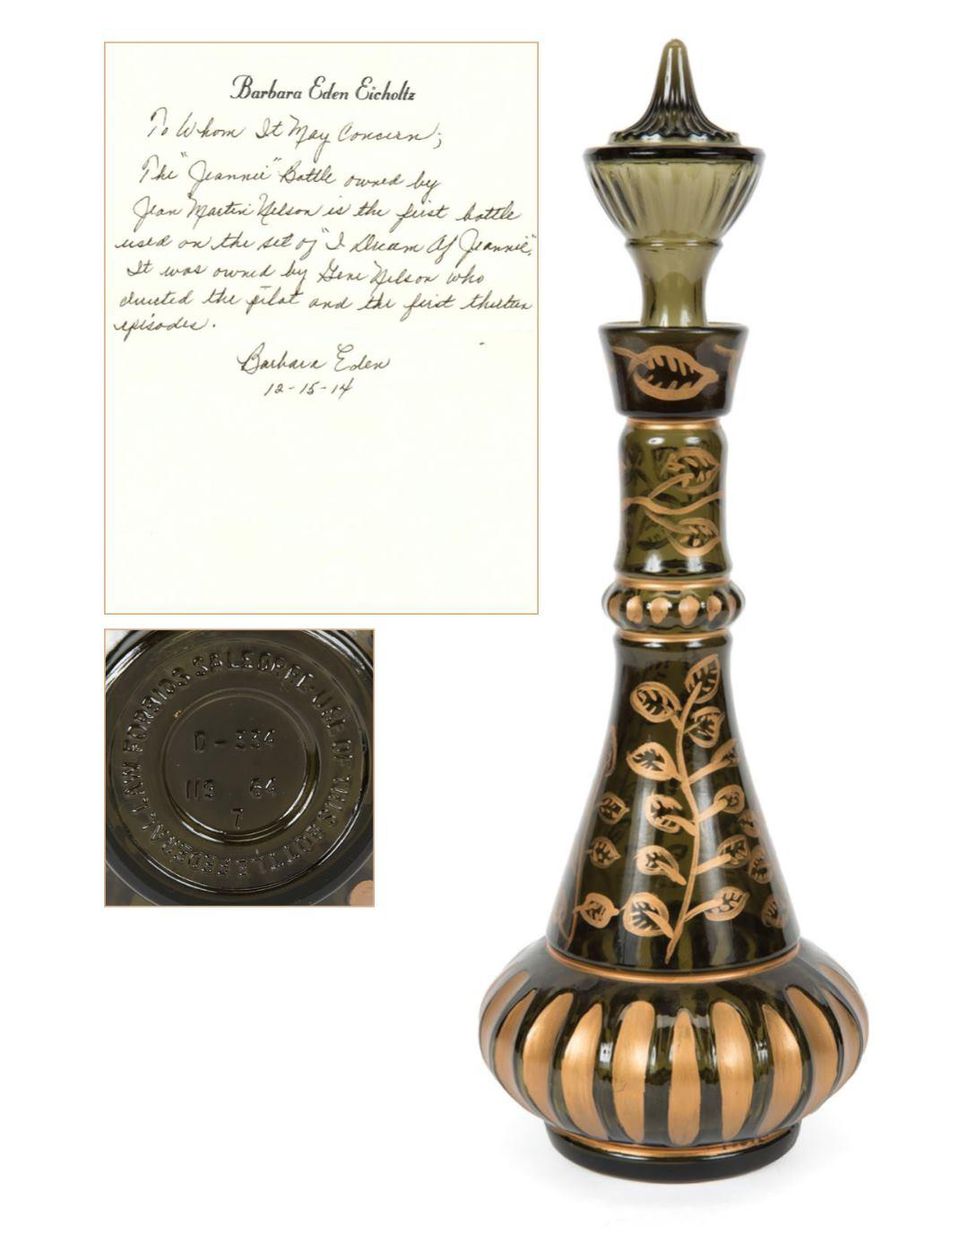 Barbara Eden Eicholtz
To Whom It May Concern;
The "Jeannie" Bottle owned by
Jean Martin Nelson is the first bottle
used on the set of "I Dream Of Jeannie".
It was owned by Gene Nelson who
directed the pilot and the first thirteen
episodes.
Barbara Eden
12-15-14
FEDERAL LAW FORBIDS SALE OR RE-USE OF THIS BOTTLE
D-334
115 64
7